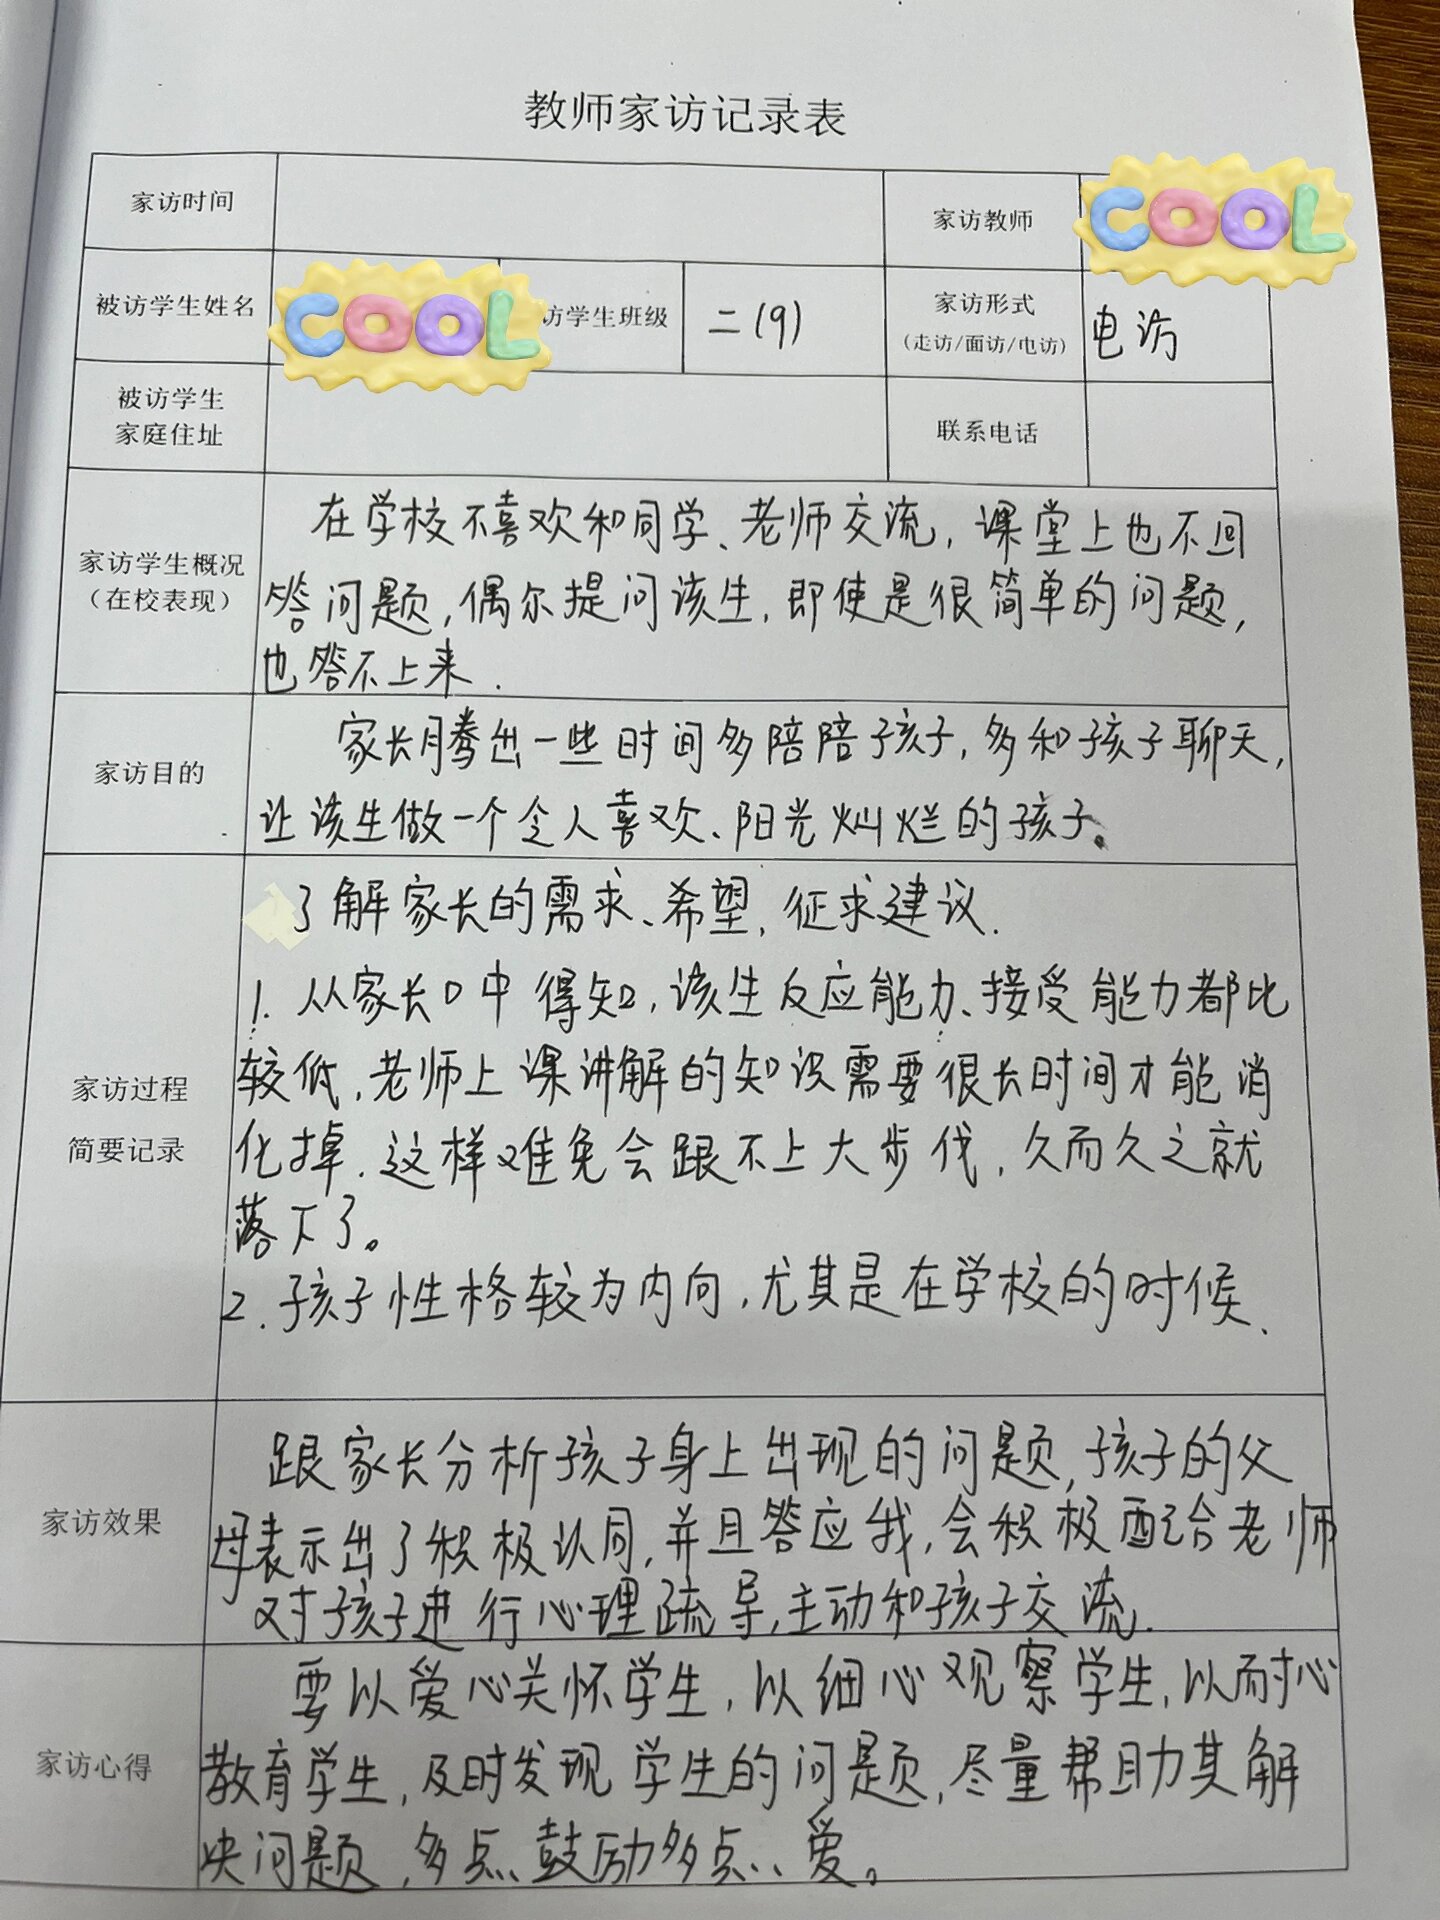 教师家访记录表
家访时间
家访教师
COOL
被访学生姓名
COOL
访学生班级
二(9)
家访形式
(走访/面访/电访)
电访
被访学生
家庭住址
联系电话
家访学生概况
(在校表现)
在学校不喜欢和同学、老师交流,课堂上也不回
答问题,偶尔提问该生,即使是很简单的问题,
也答不上来.
家访目的
家长腾出一些时间多陪陪孩子,多和孩子聊天,
让该生做一个令人喜欢、阳光灿烂的孩子。
家访过程
简要记录
了解家长的需求、希望,征求建议.
1.从家长口中得知,该生反应能力、接受能力都比
较低,老师上课讲解的知识需要很长时间才能消
化掉.这样难免会跟不上大步伐,久而久之就
落下了。
2.孩子性格较为内向,尤其是在学校的时候.
家访效果
跟家长分析孩子身上出现的问题,孩子的父
母表示出了积极认同,并且答应我,会积极配合老师
对孩子进行心理疏导,主动和孩子交流.
家访心得
要以爱心关怀学生,以细心观察学生,以耐心
教育学生,及时发现学生的问题,尽量帮助其解
决问题,多点鼓励多点爱。